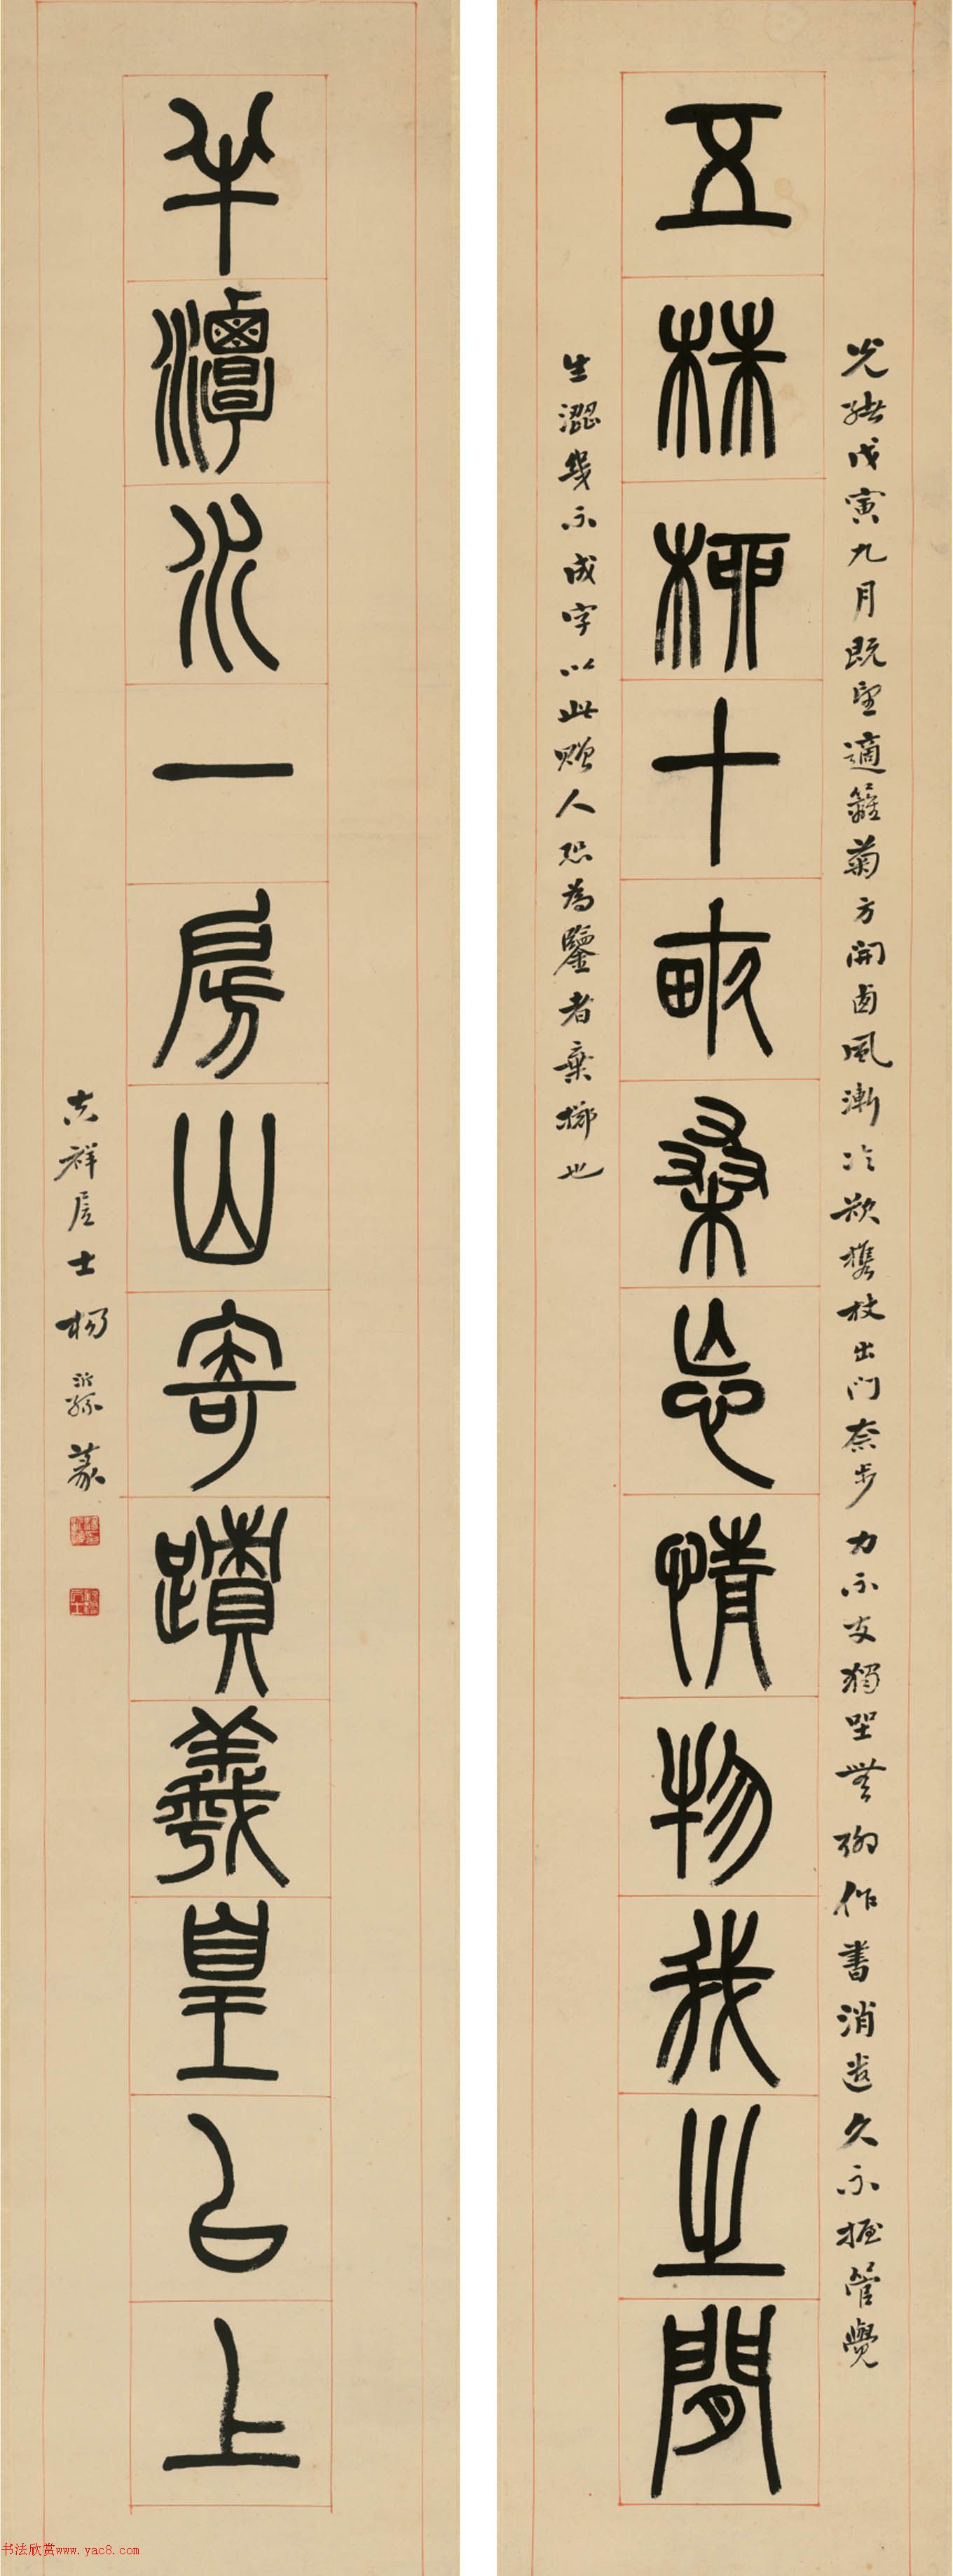 光緒戊寅九月既望適籬菊方開西風漸冷欲攜杖出门奈步力不支獨坐無聊作書消遣久不握管覺
五株柳十畝桑忘情物我之間
生澀幾不成字以此贈人恐為鑒者棄擲也
半潭水一房山寄蹟羲皇以上
吉祥居士楊沂孫篆
书法欣赏www.yac8.com